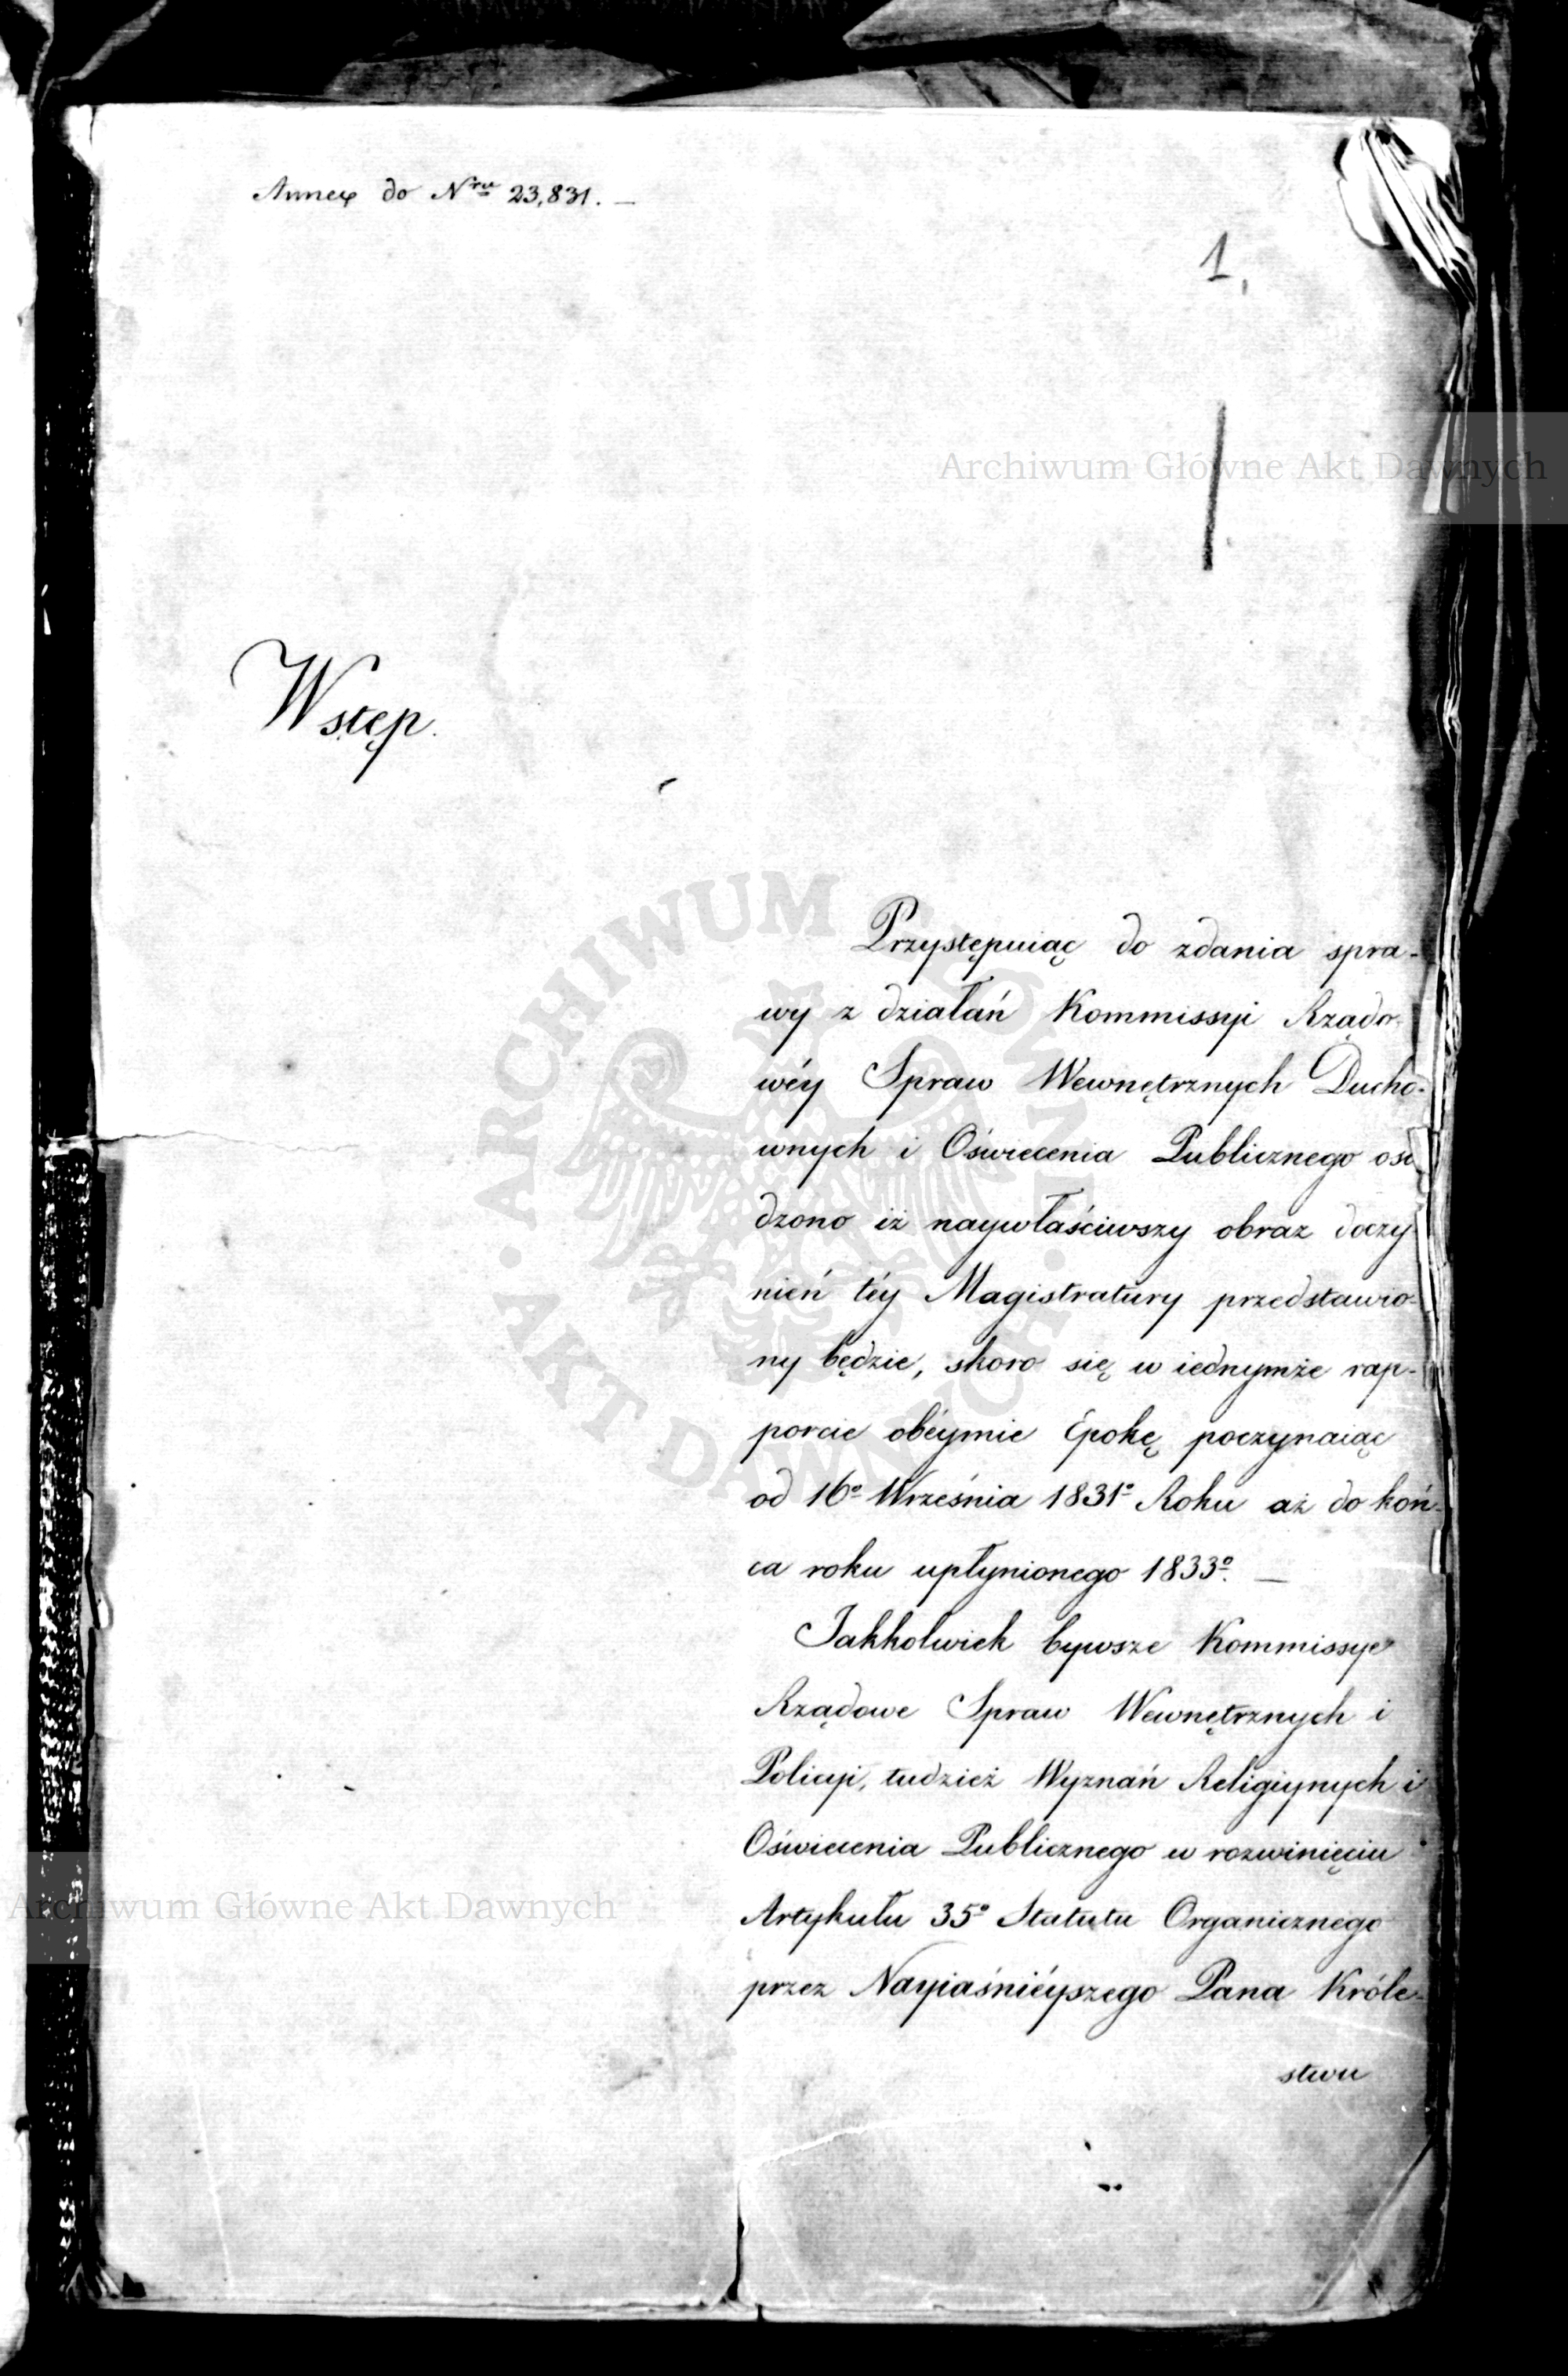 Annex do Nru 23,831. —
1,
Wstęp.
Przystępuiąc do zdania spra-
wy z działań Kommissyi Rządo-
wéy Spraw Wewnętrznych Ducho-
wnych i Oświecenia Publicznego osą
dzono iż naywłaściwszy obraz doczy
nień téy Magistratury przedstawio-
ny będzie, skoro się w iednymże rap-
porcie obéymie Epokę poczynaiąc
od 16o Września 1831o Roku aż do koń-
ca roku upłynionego 1833o. —
Jakkolwiek bywsze Kommissye
Rządowe Spraw Wewnętrznych i
Policyi, tudzież Wyznań Religiynych i
Oświecenia Publicznego w rozwinięciu
Artykułu 35o Statutu Organicznego
przez Nayiaśniéyszego Pana Króle-
stwu
Archiwum Główne Akt Dawnych
ARCHIWUM GŁÓWNE
AKT DAWNYCH
Archiwum Główne Akt Dawnych